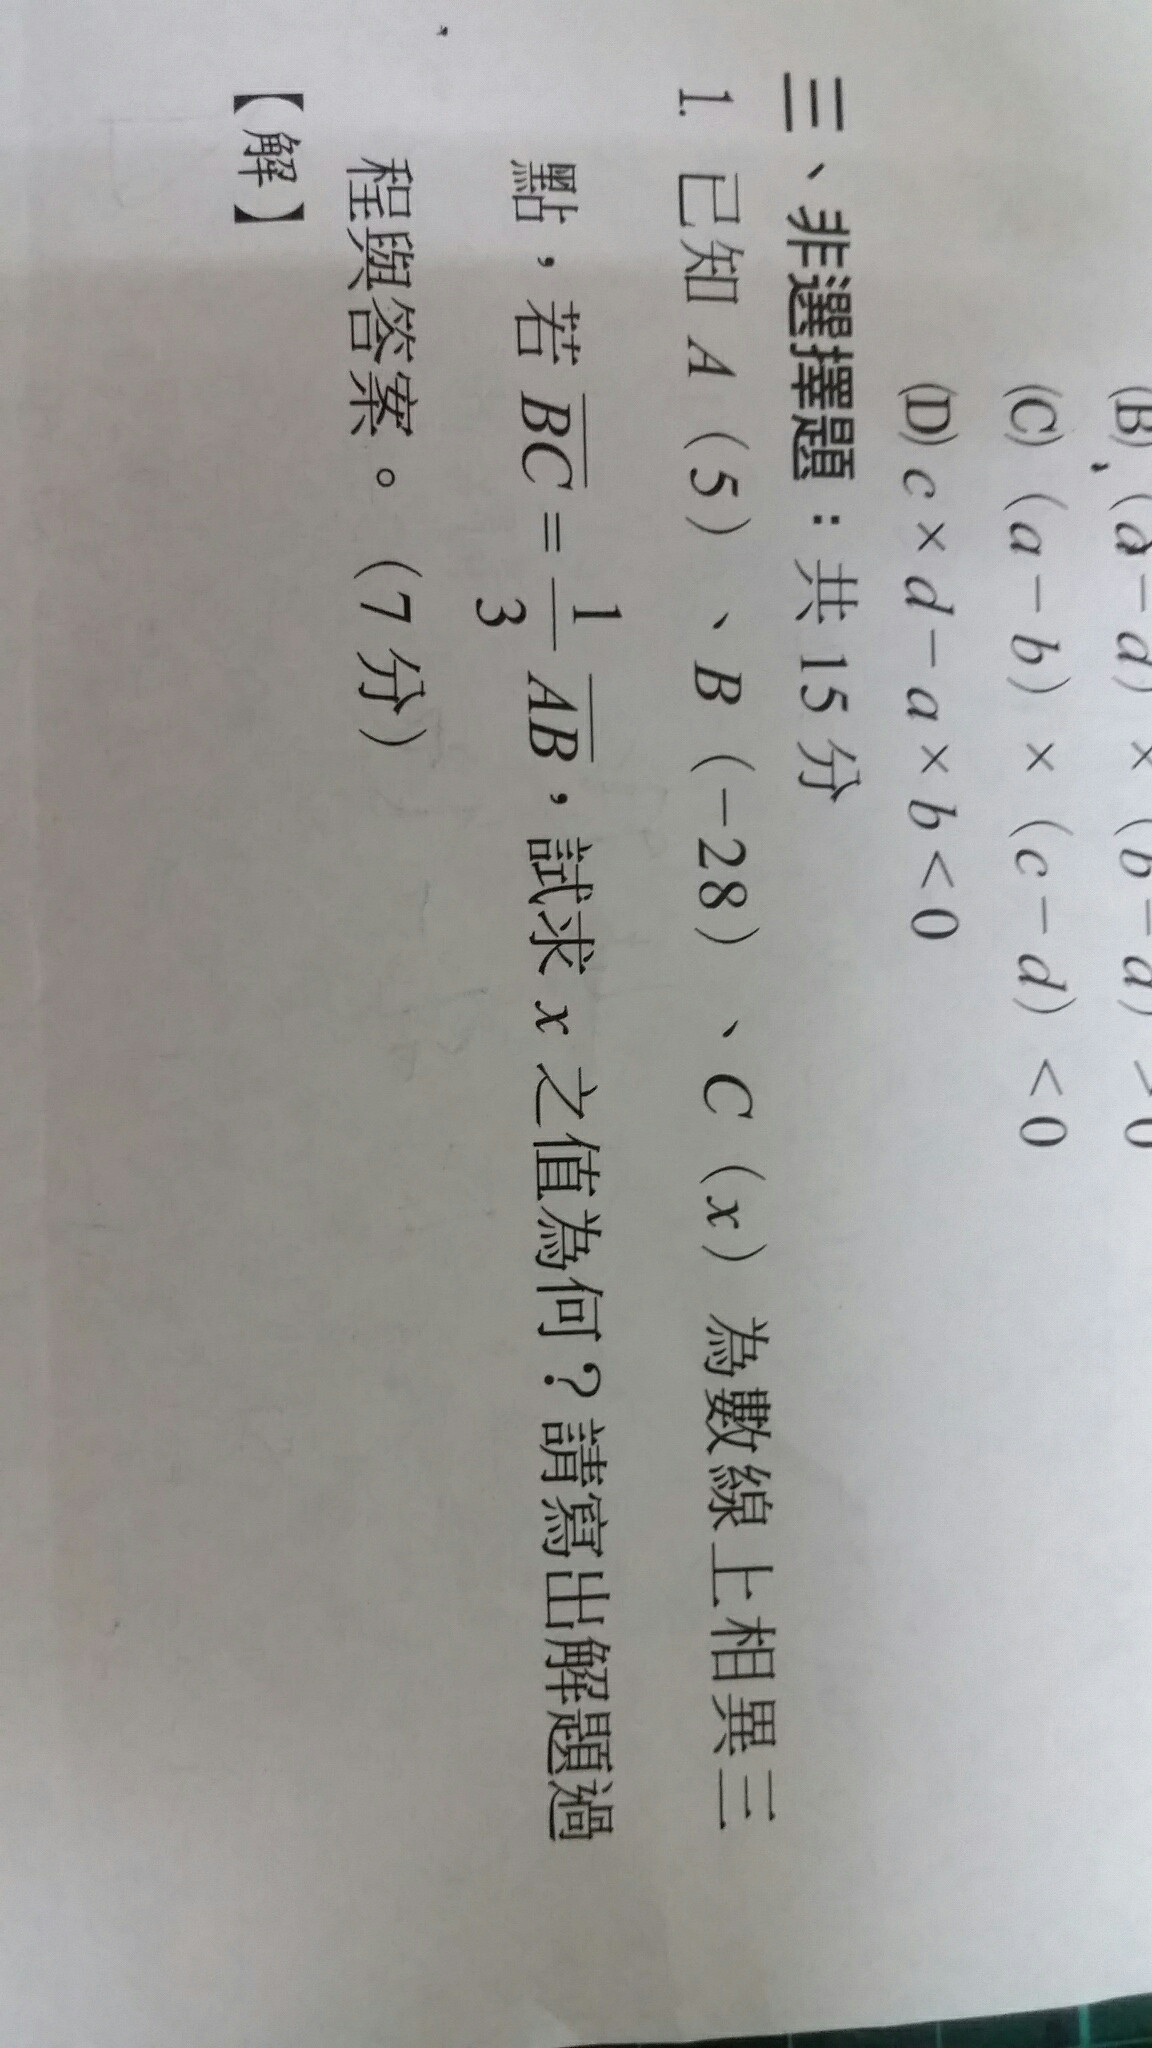 (C) (a－b) × (c－d) <0
(D) c×d－a×b<0
三、非選擇題：共15分
1. 已知 A (5)、B (－28)、C (x) 為數線上相異三
點，若 BC = 1/3 AB，試求 x 之值為何？請寫出解題過
程與答案。(7分)
【解】